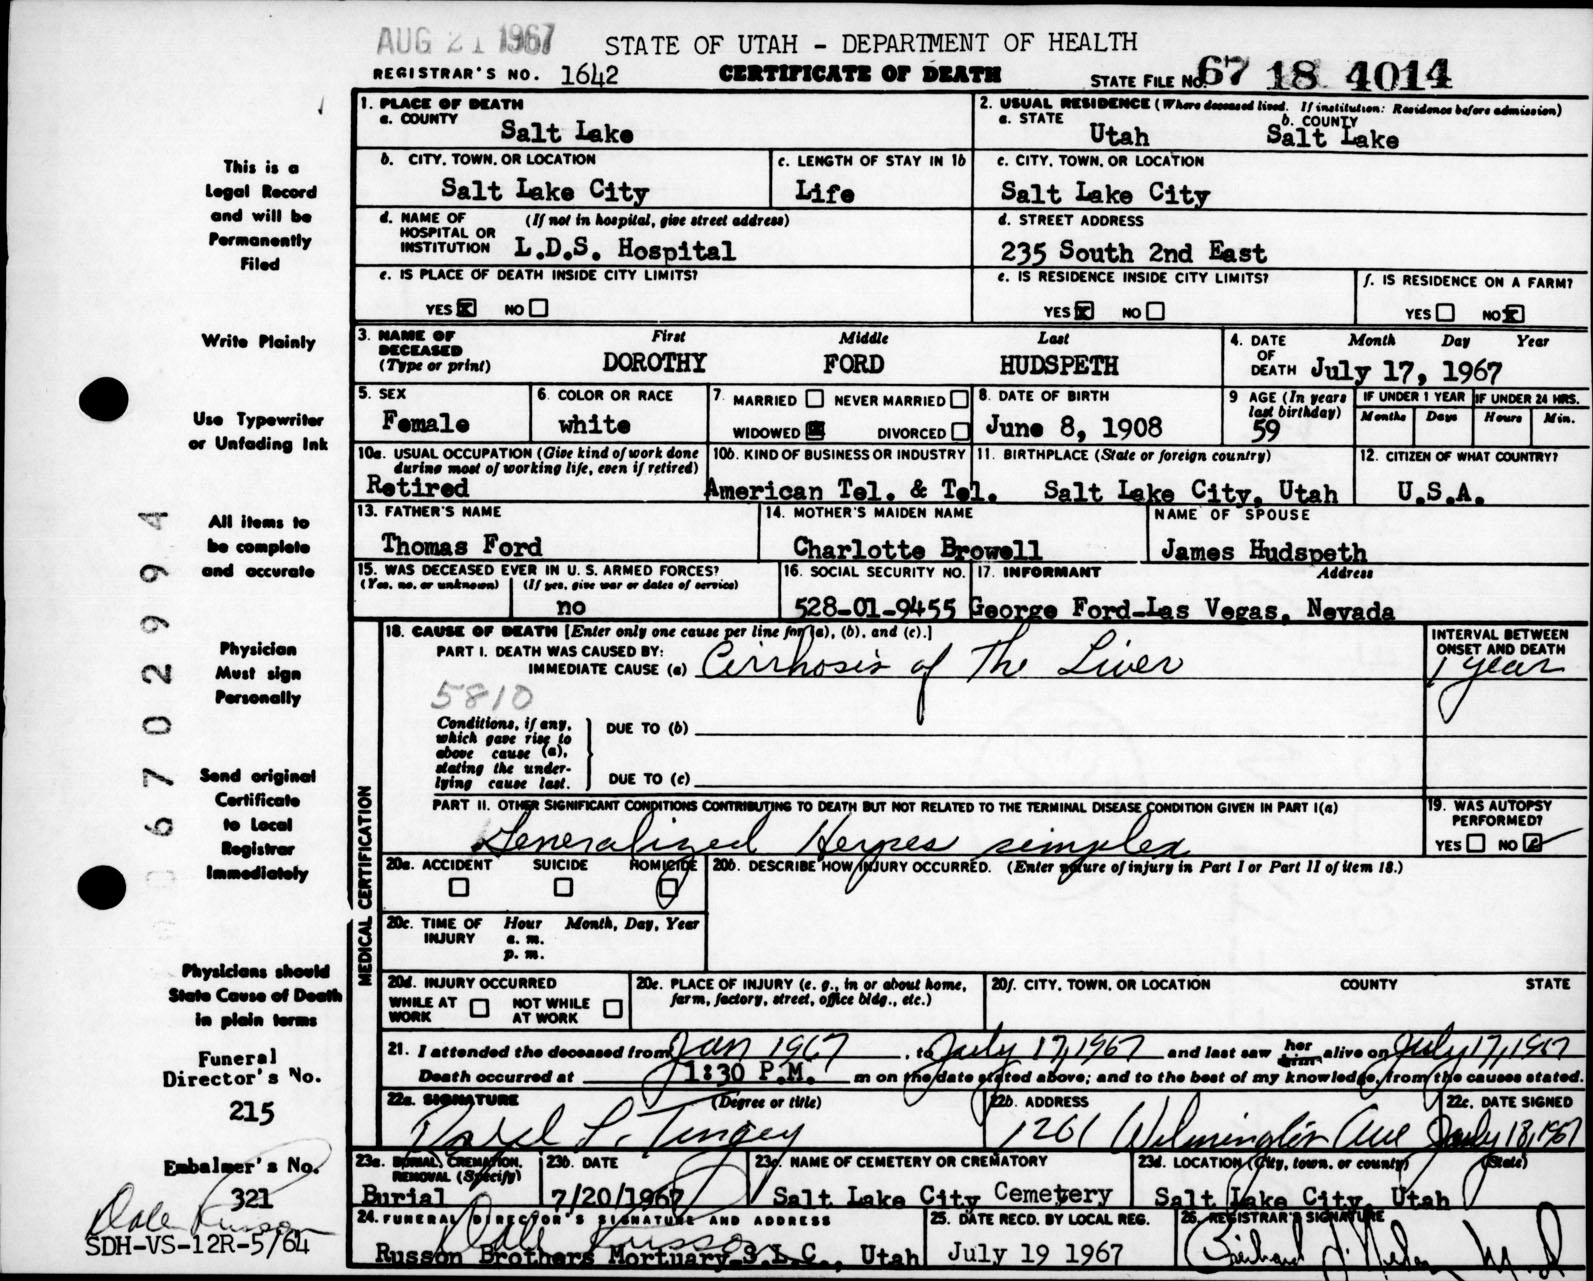 AUG 21 1967
STATE OF UTAH - DEPARTMENT OF HEALTH
REGISTRAR'S NO. 1642
CERTIFICATE OF DEATH
STATE FILE NO. 67 18 4014
This is a
Legal Record
and will be
Permanently
Filed
Write Plainly
Use Typewriter
or Unfading Ink
All items to
be complete
and accurate
Physician
Must sign
Personally
Send original
Certificate
to Local
Registrar
Immediately
Physicians should
State Cause of Death
in plain terms
Funeral
Director's No.
215
Embalmer's No.
321
Dale Russon
SDH-VS-12R-5/64
67029994
1. PLACE OF DEATH
a. COUNTY
Salt Lake
2. USUAL RESIDENCE (Where deceased lived. If institution: Residence before admission)
a. STATE
Utah
b. COUNTY
Salt Lake
b. CITY, TOWN, OR LOCATION
Salt Lake City
c. LENGTH OF STAY IN 1b
Life
c. CITY, TOWN, OR LOCATION
Salt Lake City
d. NAME OF HOSPITAL OR INSTITUTION (If not in hospital, give street address)
L.D.S. Hospital
d. STREET ADDRESS
235 South 2nd East
e. IS PLACE OF DEATH INSIDE CITY LIMITS?
YES X NO
e. IS RESIDENCE INSIDE CITY LIMITS?
YES X NO
f. IS RESIDENCE ON A FARM?
YES NO X
3. NAME OF DECEASED (Type or print)
First Middle Last
DOROTHY FORD HUDSPETH
4. DATE OF DEATH Month Day Year
July 17, 1967
5. SEX
Female
6. COLOR OR RACE
white
7. MARRIED NEVER MARRIED
WIDOWED X DIVORCED
8. DATE OF BIRTH
June 8, 1908
9 AGE (In years last birthday)
59
IF UNDER 1 YEAR
Months Days
IF UNDER 24 HRS.
Hours Min.
10a. USUAL OCCUPATION (Give kind of work done during most of working life, even if retired)
Retired
10b. KIND OF BUSINESS OR INDUSTRY
American Tel. & Tel.
11. BIRTHPLACE (State or foreign country)
Salt Lake City, Utah
12. CITIZEN OF WHAT COUNTRY?
U.S.A.
13. FATHER'S NAME
Thomas Ford
14. MOTHER'S MAIDEN NAME
Charlotte Browell
NAME OF SPOUSE
James Hudspeth
15. WAS DECEASED EVER IN U.S. ARMED FORCES?
(Yes, no, or unknown) (If yes, give war or dates of service)
no
16. SOCIAL SECURITY NO.
528-01-9455
17. INFORMANT Address
George Ford-Las Vegas, Nevada
MEDICAL CERTIFICATION
18. CAUSE OF DEATH [Enter only one cause per line for (a), (b), and (c).]
PART I. DEATH WAS CAUSED BY:
IMMEDIATE CAUSE (a) Cirrhosis of The Liver
INTERVAL BETWEEN ONSET AND DEATH
1 year
5810
Conditions, if any, which gave rise to above cause (a), stating the underlying cause last.
DUE TO (b)
DUE TO (c)
PART II. OTHER SIGNIFICANT CONDITIONS CONTRIBUTING TO DEATH BUT NOT RELATED TO THE TERMINAL DISEASE CONDITION GIVEN IN PART I(a)
Generalized Herpes simplex
19. WAS AUTOPSY PERFORMED?
YES NO
20a. ACCIDENT SUICIDE HOMICIDE
20b. DESCRIBE HOW INJURY OCCURRED. (Enter nature of injury in Part I or Part II of item 18.)
20c. TIME OF INJURY Hour Month, Day, Year
a. m.
p. m.
20d. INJURY OCCURRED
WHILE AT WORK NOT WHILE AT WORK
20e. PLACE OF INJURY (e. g., in or about home, farm, factory, street, office bldg., etc.)
20f. CITY, TOWN, OR LOCATION COUNTY STATE
21. I attended the deceased from Jan 1967, to July 17, 1967 and last saw her him alive on July 17, 1967
Death occurred at 1:30 P.M. m on the date stated above; and to the best of my knowledge, from the causes stated.
22a. SIGNATURE (Degree or title)
L. Tingey
22b. ADDRESS
1261 Wilmington Ave
22c. DATE SIGNED
July 18, 1967
23a. BURIAL, CREMATION, REMOVAL (Specify)
Burial
23b. DATE
7/20/1967
23c. NAME OF CEMETERY OR CREMATORY
Salt Lake City Cemetery
23d. LOCATION (City, town, or county) (State)
Salt Lake City, Utah
24. FUNERAL DIRECTOR'S SIGNATURE AND ADDRESS
Dale Russon
Russon Brothers Mortuary-S.L.C., Utah
25. DATE RECD. BY LOCAL REG.
July 19 1967
26. REGISTRAR'S SIGNATURE